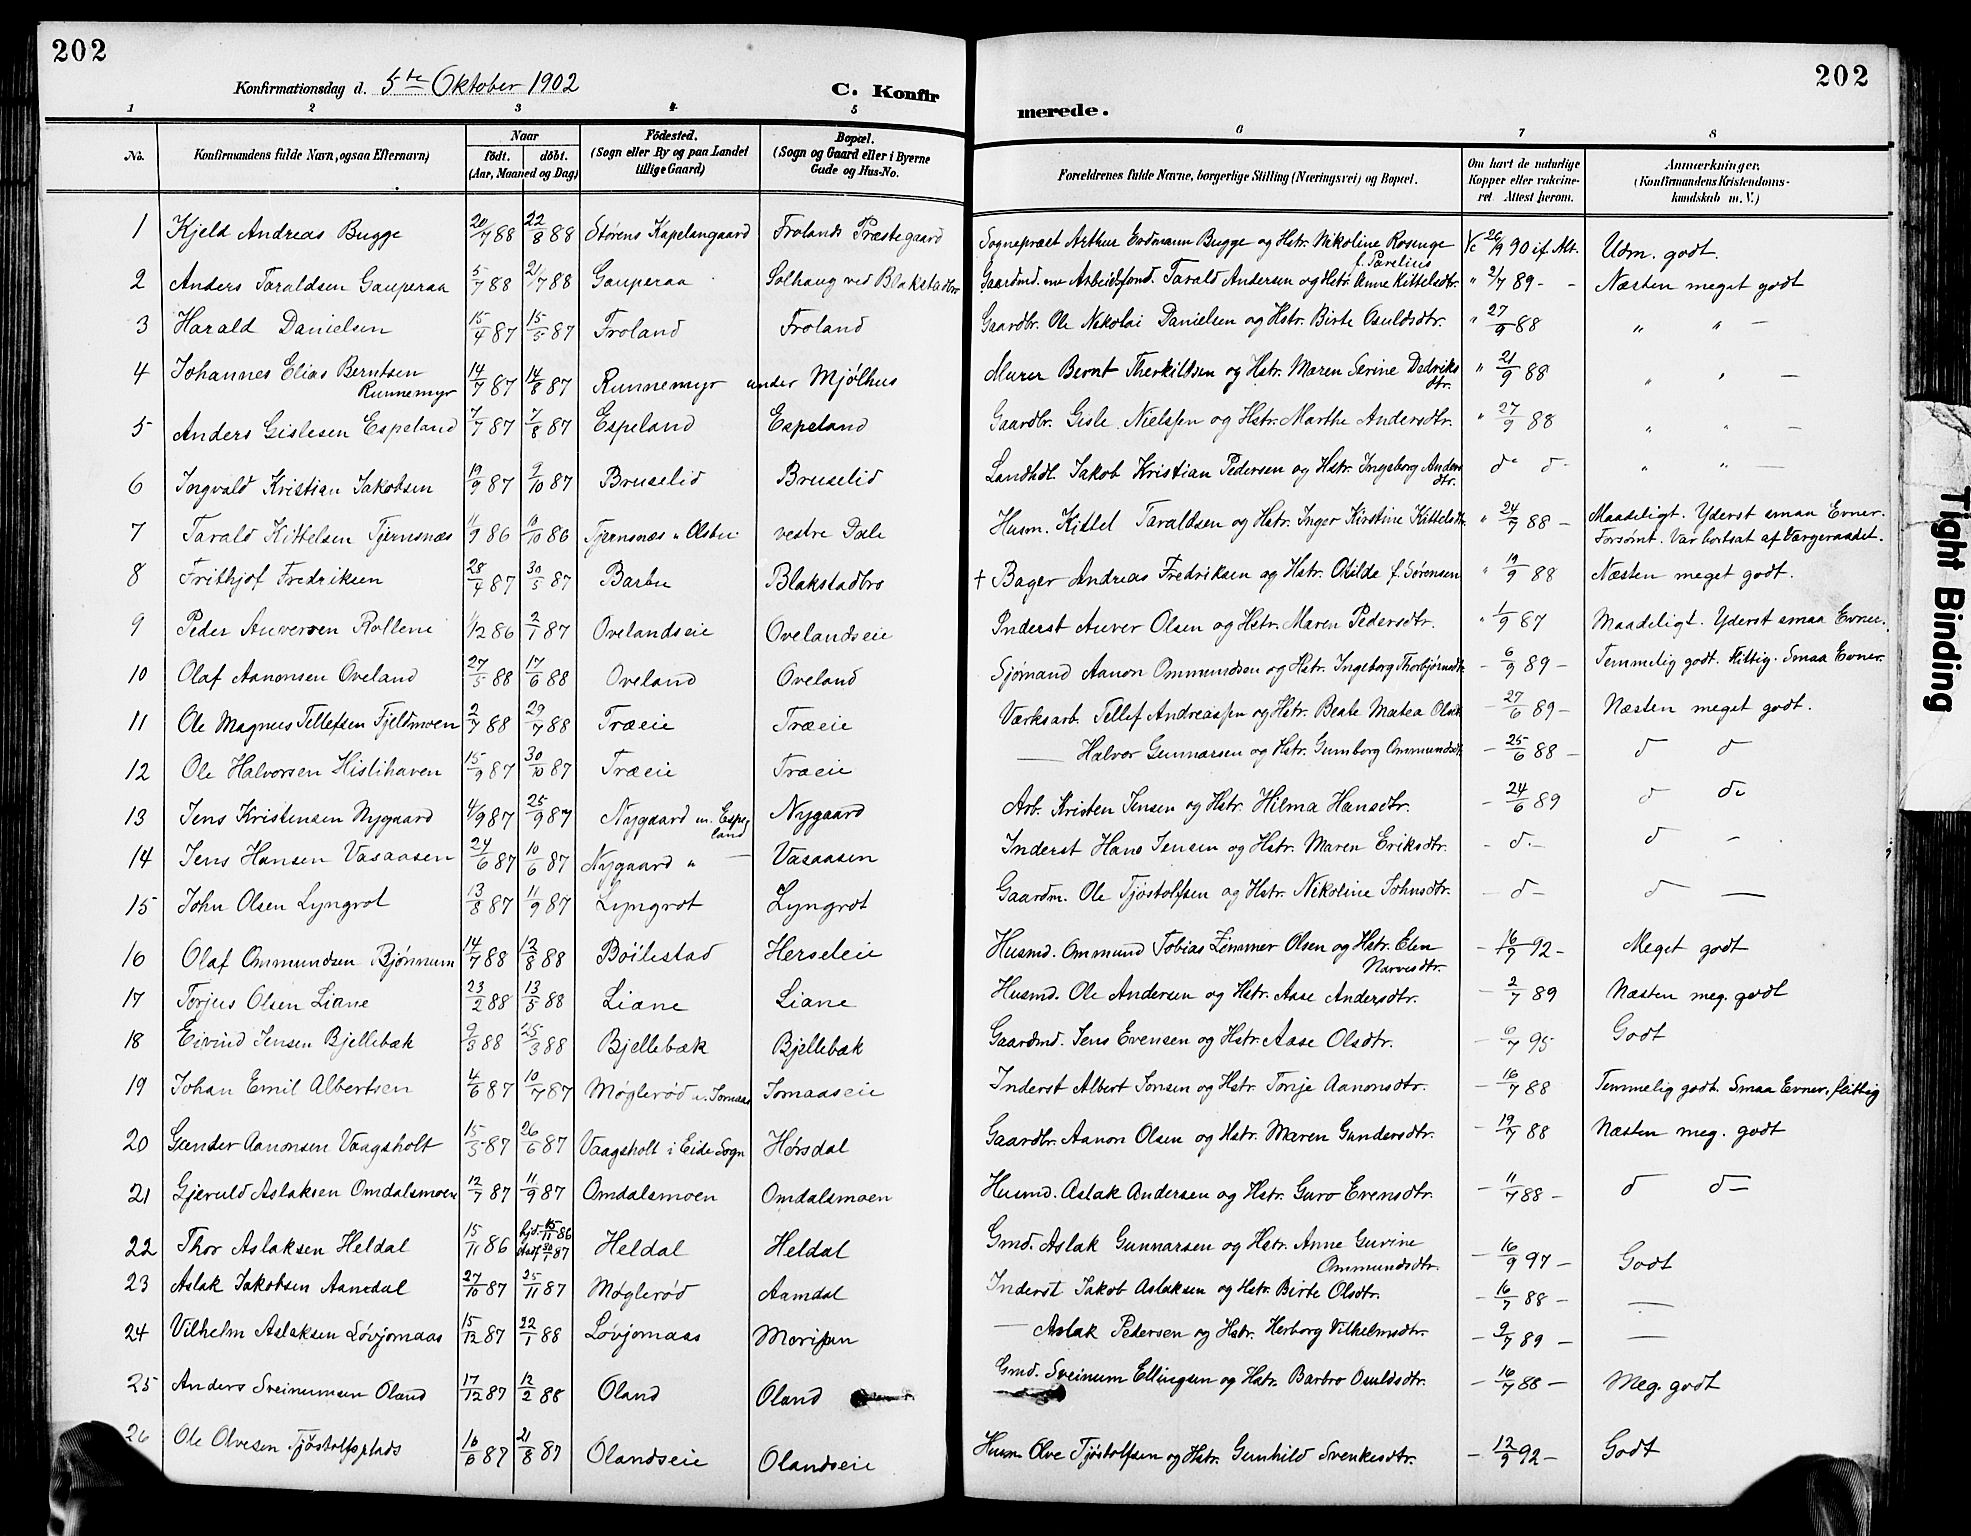 202
Konfirmationsdag d. 5te Oktober 1902
C. Konfir
1 2 3 4 5
No. Konfirmandens fulde Navn, ogsaa Efternavn) Naar födt. döbt. (Aar, Maaned og Dag) Födested. (Sogn eller By og paa Landet tillige Gaard) Bopæl. (Sogn og Gaard eller i Byerne Gade og Hus-No.
1 Kjeld Andreas Bugge 20/7 88 22/8 88 Størens Kapelangaard Frolands Præstegaard
2 Anders Taraldsen Gauperaa 5/7 88 21/7 88 Gauperaa Solhaug ved Blakstadbro
3 Harald Danielsen 15/4 87 15/5 87 Froland Froland
4 Johannes Elias Berntsen Runnemyr 14/7 87 14/8 87 Runnemyr under Mjølhus
5 Anders Gislesen Espeland 7/7 87 7/8 87 Espeland Espeland
6 Ingvald Kristian Jakobsen 19/9 87 9/10 87 Bruselid Bruselid
7 Tarald Kittelsen Tjernsnæs 11/9 86 10/10 86 Tjernsnæs vestre Dale
8 Frithjof Fredriksen 28/4 87 30/5 87 Barbu Blakstadbro
9 Peder Auversen Rollene 1/12 86 2/1 87 Ovelandseie Ovelandseie
10 Olaf Aanonsen Oveland 27/5 88 17/6 88 Oveland Oveland
11 Ole Magnus Tellefsen Fjeldmoen 2/7 88 29/7 88 Træeie Træeie
12 Ole Halvorsen Hislihaven 15/9 87 30/10 87 Træeie Træeie
13 Jens Kristensen Nygaard 4/9 87 25/9 87 Nygaard u. Espeland Nygaard
14 Jens Hansen Vasaasen 24/6 87 10/6 87 Nygaard " — Vasaasen
15 John Olsen Lyngrot 13/8 87 11/9 87 Lyngrot Lyngrot
16 Olaf Ommundsen Bjørmum 14/7 88 12/8 88 Böilestad Herseleie
17 Torjus Olsen Liane 23/2 88 13/5 88 Liane Liane
18 Eivind Jensen Bjellebæk 9/3 88 25/3 88 Bjellebæk Bjellebæk
19 Johan Emil Albertsen 4/6 87 10/7 87 Møglerød u. Jomaas Jomaaseie
20 Gunder Aanonsen Vaagsholt 15/5 87 26/6 87 Vaagsholt i Eide Sogn Hørsdal
21 Gjeruld Aslaksen Omdalsmoen 12/7 87 11/9 87 Omdalsmoen Omdalsmoen
22 Thor Aslaksen Heldal 15/11 86 hjd. 15/11 86 Heldal Heldal
23 Aslak Jakobsen Aamdal 27/10 87 25/11 87 Møglerød Aamdal
24 Vilhelm Aslaksen Løvjomaas 15/12 87 22/1 88 Løvjomaas Morisæn
25 Anders Sveinumsen Oland 17/12 87 12/2 88 Oland Oland
26 Ole Olvesen Tjøstolfsplads 16/6 87 21/8 87 Olandseie Olandseie
202
merede.
6 7 8
Forældrenes fulde Navne, borgerlige Stilling (Næringsvei) og Bopæl. Om havt de naturlige Kopper eller vakcineret. Attest herom. Anmærkninger, (Konfirmandens Kristendomskundskab m. V.)
Sognepræst Arthur Eodmann Bugge og Hstr. Nikoline Rosenge f. Parelius Vc 26/9 90 if. Att. Udm. godt.
Gaardmd. Tarald Andersen og Hstr. Anne Kittelsdtr. " 2/7 89 - - Næsten meget godt
Gaardbr. Ole Nikolai Danielsen og Hstr. Birte Osuldsdtr. " 27/9 88 " " —
Murer Bernt Therkildsen og Hstr. Maren Serine Dedriksdtr. " 21/9 88 " " —
Gaardbr. Gisle Nielssen og Hstr. Marthe Andersdtr. " 27/9 88 " " —
Landhdl. Jakob Kristian Pedersen og Hstr. Ingeborg Andersdtr. do do " " —
Husm. Kittel Taraldsen og Hstr. Inger Kirstine Kittelsdtr. " 24/7 88 — Maadeligt. Yderst smaa Evner. Forsømt. Var bortsat af Værgeraadet.
† Bager Andreas Fredriksen og Hstr. Otilde f. Sørensen " 19/9 88 Næsten meget godt.
Inderst Auver Olsen og Hstr. Maren Pedersdtr. " 1/9 87 Maadeligt. Yderst smaa Evner.
Sjømand Aanon Ommundsen og Hstr. Ingeborg Thorbjørnsdtr. - 6/9 89 - Temmelig godt. Flittig. Smaa Evner.
Værksarb. Tellef Andreassen og Hstr. Beate Matea Olsdtr. - 27/6 89 - Næsten meget godt.
— Halvor Gunnarsen og Hstr. Gumborg Ommundsdtr. - 25/6 88 - d d
Arb. Kristen Jensen og Hstr. Hilma Hansdtr. - 24/6 89 d do
Inderst Hans Jensen og Hstr. Maren Eriksdtr. - d. - d -
Gaardm. Ole Tjøstolfsen og Hstr. Nikoline Johnsdtr. - d - d —
Husmd. Ommund Tobias Zimmer Olsen og Hstr. Elen Narvesdtr. - 16/9 92 - Meget godt
Husmd. Ole Andersen og Hstr. Aase Andersdtr. - 2/7 89 Næsten meg. godt
Gaardmd. Jens Evensen og Hstr. Aase Olsdtr. - 6/7 95 Godt
Inderst Albert Jonsen og Hstr. Torije Aanonsdtr. - 16/7 88 Temmelig godt. Smaa Evner, flittig
Gaardbr. Aanon Olsen og Hstr. Maren Gundersdtr. - 19/7 88 Næsten meg. godt
Husmd. Aslak Andersen og Hstr. Guro Evensdtr. - 11/7 88 - d d —
Gmd. Aslak Gunnarsen og Hstr. Anne Guvine Ommundsdtr. - 16/9 97 - Godt
Inderst Jakob Aslaksen og Hstr. Birte Olsdtr. - 16/7 88 - —
— Aslak Pedersen og Hstr. Herborg Vilhelmsdtr. - 9/7 89 - —
Gmd. Sveinum Ellingsen og Hstr. Barbro Osuldsdtr. - 16/7 88 - Meg. godt
Husm. Olve Tjøstolfsen og Hstr. Gunhild Svenkesdtr. - 12/9 92 - Godt
Tight Binding